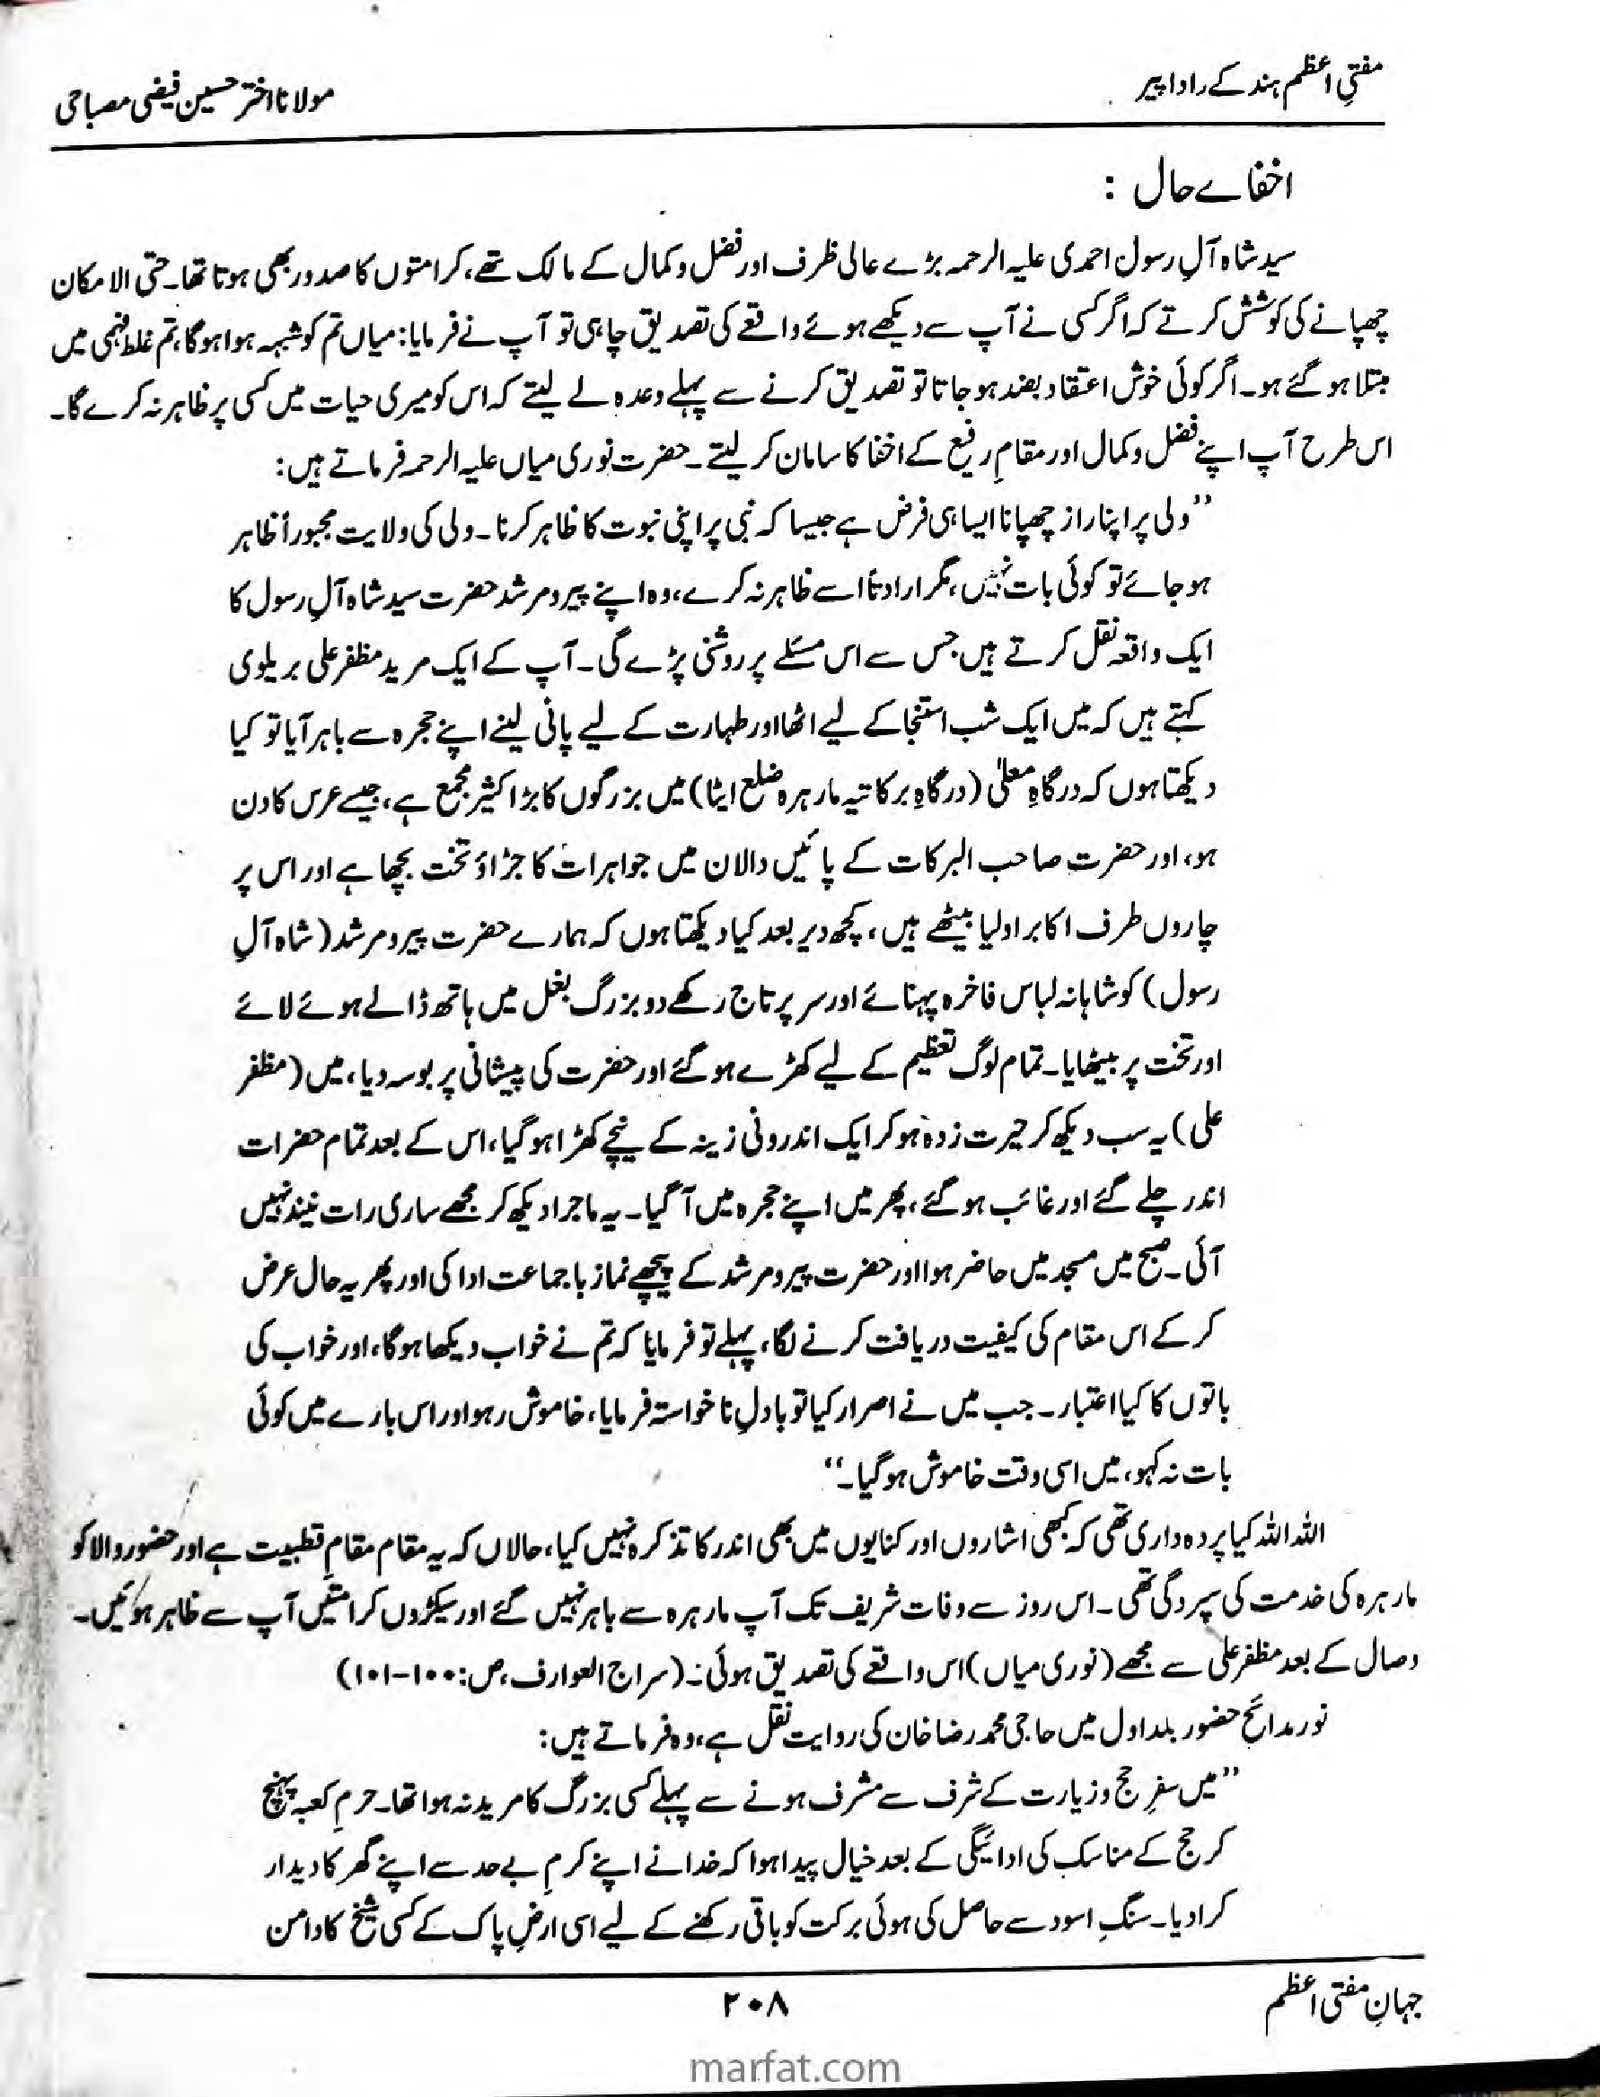 مفتیِ اعظم ہند کے دادا پیر
مولانا اختر حسین فیضی مصباحی
اخفاے حال :
سید شاہ آلِ رسول احمدی علیہ الرحمہ بڑے عالی ظرف اور فضل و کمال کے مالک تھے، کرامتوں کا صدور بھی ہوتا تھا۔ حتی الامکان
چھپانے کی کوشش کرتے کہ اگر کسی نے آپ سے دیکھے ہوئے واقعے کی تصدیق چاہی تو آپ نے فرمایا: میاں تم کو شبہہ ہوا ہوگا، تم غلط فہمی میں
مبتلا ہو گئے ہو۔ اگر کوئی خوش اعتقاد بضد ہو جاتا تو تصدیق کرنے سے پہلے وعدہ لے لیتے کہ اس کو میری حیات میں کسی پر ظاہر نہ کرے گا۔
اس طرح آپ اپنے فضل و کمال اور مقامِ رفیع کے اخفا کا سامان کر لیتے۔ حضرت نوری میاں علیہ الرحمہ فرماتے ہیں:
”ولی پر اپنا راز چھپانا ایسا ہی فرض ہے جیسا کہ نبی پر اپنی نبوت کا ظاہر کرنا۔ ولی کی ولایت مجبوراً ظاہر
ہو جائے تو کوئی بات نہیں، مگر ارادتاً اسے ظاہر نہ کرے، وہ اپنے پیر و مرشد حضرت سید شاہ آلِ رسول کا
ایک واقعہ نقل کرتے ہیں جس سے اس مسئلے پر روشنی پڑے گی۔ آپ کے ایک مرید مظفر علی بریلوی
کہتے ہیں کہ میں ایک شب استنجا کے لیے اٹھا اور طہارت کے لیے پانی لینے اپنے حجرہ سے باہر آیا تو کیا
دیکھتا ہوں کہ درگاہِ معلیٰ (درگاہِ برکاتیہ مارہرہ ضلع ایٹا) میں بزرگوں کا بڑا کثیر مجمع ہے، جیسے عرس کا دن
ہو، اور حضرت صاحب البرکات کے پائیں دالان میں جواہرات کا جڑاؤ تخت بچھا ہے اور اس پر
چاروں طرف اکابر اولیا بیٹھے ہیں، کچھ دیر بعد کیا دیکھتا ہوں کہ ہمارے حضرت پیر و مرشد (شاہ آلِ
رسول) کو شاہانہ لباس فاخرہ پہنائے اور سر پر تاج رکھے دو بزرگ بغل میں ہاتھ ڈالے ہوئے لائے
اور تخت پر بیٹھایا۔ تمام لوگ تعظیم کے لیے کھڑے ہو گئے اور حضرت کی پیشانی پر بوسہ دیا، میں (مظفر
علی) یہ سب دیکھ کر حیرت زدہ ہو کر ایک اندرونی زینہ کے نیچے کھڑا ہو گیا، اس کے بعد تمام حضرات
اندر چلے گئے اور غائب ہو گئے، پھر میں اپنے حجرہ میں آ گیا۔ یہ ماجرا دیکھ کر مجھے ساری رات نیند نہیں
آئی۔ صبح میں مسجد میں حاضر ہوا اور حضرت پیر و مرشد کے پیچھے نماز باجماعت ادا کی اور پھر یہ حال عرض
کر کے اس مقام کی کیفیت دریافت کرنے لگا، پہلے تو فرمایا کہ تم نے خواب دیکھا ہوگا، اور خواب کی
باتوں کا کیا اعتبار۔ جب میں نے اصرار کیا تو بادلِ ناخواستہ فرمایا، خاموش رہو اور اس بارے میں کوئی
بات نہ کہو، میں اسی وقت خاموش ہو گیا۔“
اللہ اللہ کیا پردہ داری تھی کہ کبھی اشاروں اور کنایوں میں بھی اندر کا تذکرہ نہیں کیا، حالاں کہ یہ مقام مقامِ قطبیت ہے اور حضور والا کو
مارہرہ کی خدمت کی سپردگی تھی۔ اس روز سے وفات شریف تک آپ مارہرہ سے باہر نہیں گئے اور سیکڑوں کرامتیں آپ سے ظاہر ہوئیں۔
وصال کے بعد مظفر علی سے مجھے (نوری میاں) اس واقعے کی تصدیق ہوئی۔ (سراج العوارف، ص: ۱۰۰-۱۰۱)
نور مدائح حضور بلد اول میں حاجی محمد رضا خان کی روایت نقل ہے، وہ فرماتے ہیں:
”میں سفرِ حج و زیارت کے شرف سے مشرف ہونے سے پہلے کسی بزرگ کا مرید نہ ہوا تھا۔ حرمِ کعبہ پہنچ
کر حج کے مناسک کی ادائیگی کے بعد خیال پیدا ہوا کہ خدا نے اپنے کرمِ بے حد سے اپنے گھر کا دیدار
کرا دیا۔ سنگِ اسود سے حاصل کی ہوئی برکت کو باقی رکھنے کے لیے اسی ارضِ پاک کے کسی شیخ کا دامن
جہانِ مفتی اعظم
۲۰۸
marfat.com